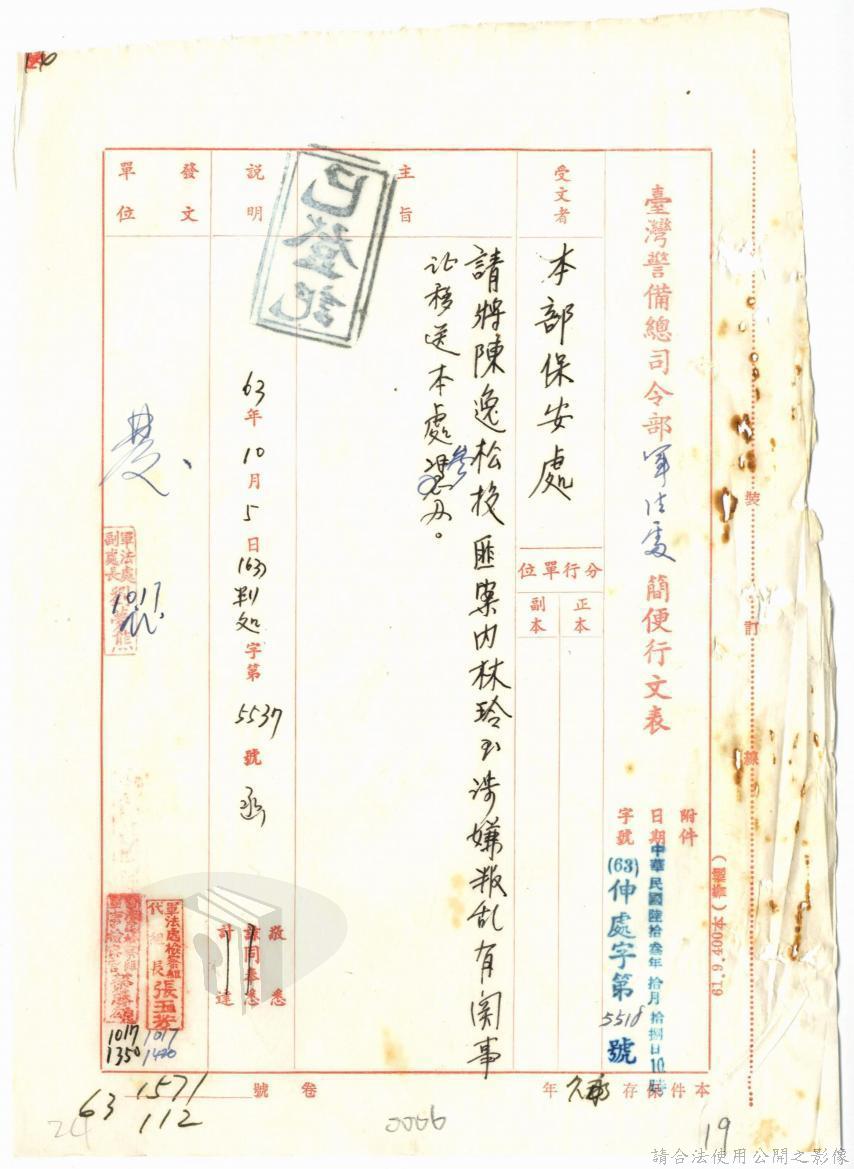 臺灣警備總司令部軍法處簡便行文表
附件
日期 中華民國陸拾叁年拾月拾捌日10時
字號 (63)伸處字第5518號
受文者
本部保安處
分行單位
正本
副本
主旨
請將陳逸松投匪案內林玲玉涉嫌叛乱有関事
証移送本處參办。
說明
63年10月5日(63)判处字第5537號函
敬悉
諒同奉悉
計達
發文單位
已登記
軍法處
副處長
1017
軍法處檢察組
代組長張玉芬
1017
1420
1017
1350
本件保存永久年
卷號
63 1571
112
裝
訂
線
61.9.400本
0056
19
24
請合法使用公開之影像